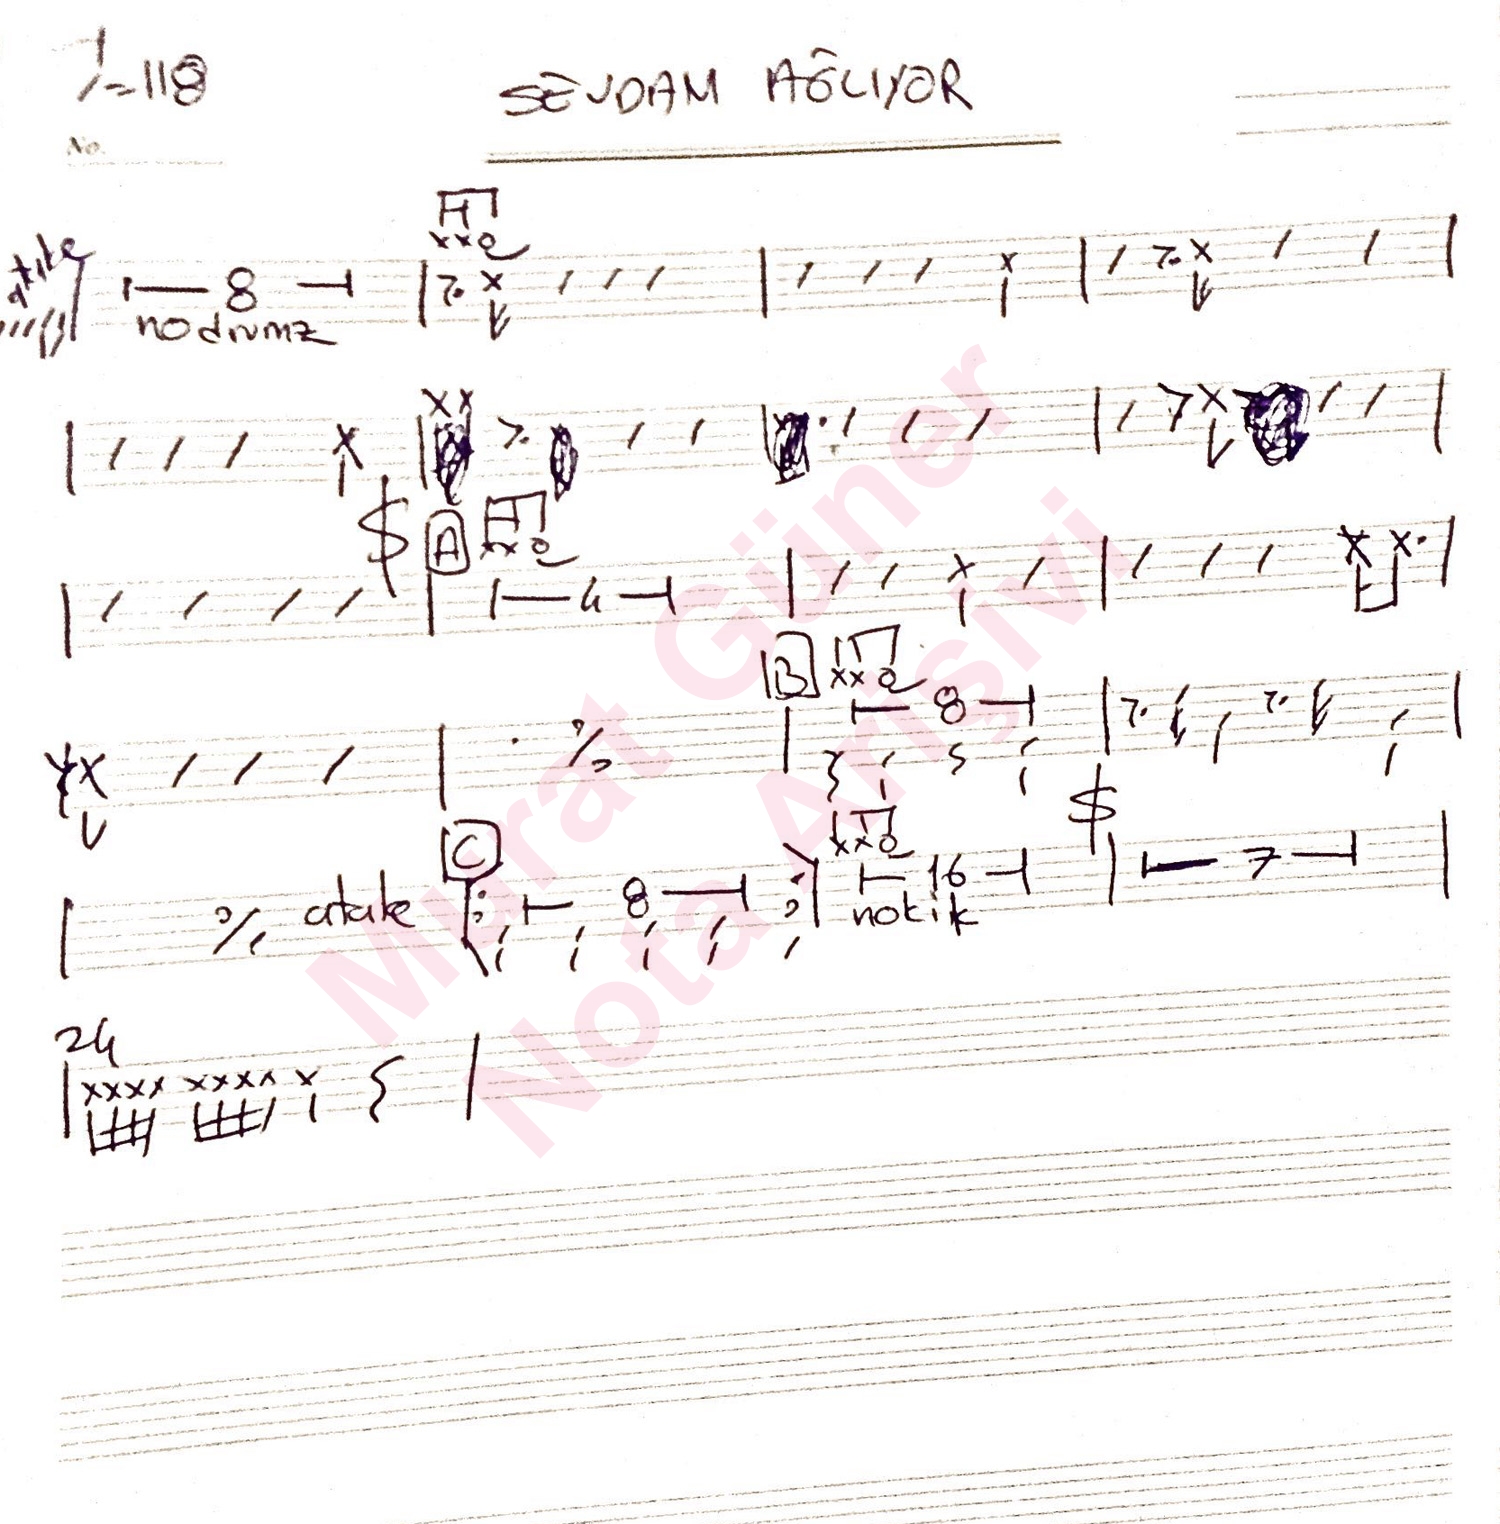 =118
SEVDAM AĞLIYOR
No.
atake
8
no drumz
A
4
B
8
C
atake
8
16
no kik
7
24
Murat Güner
Nota Arişivi